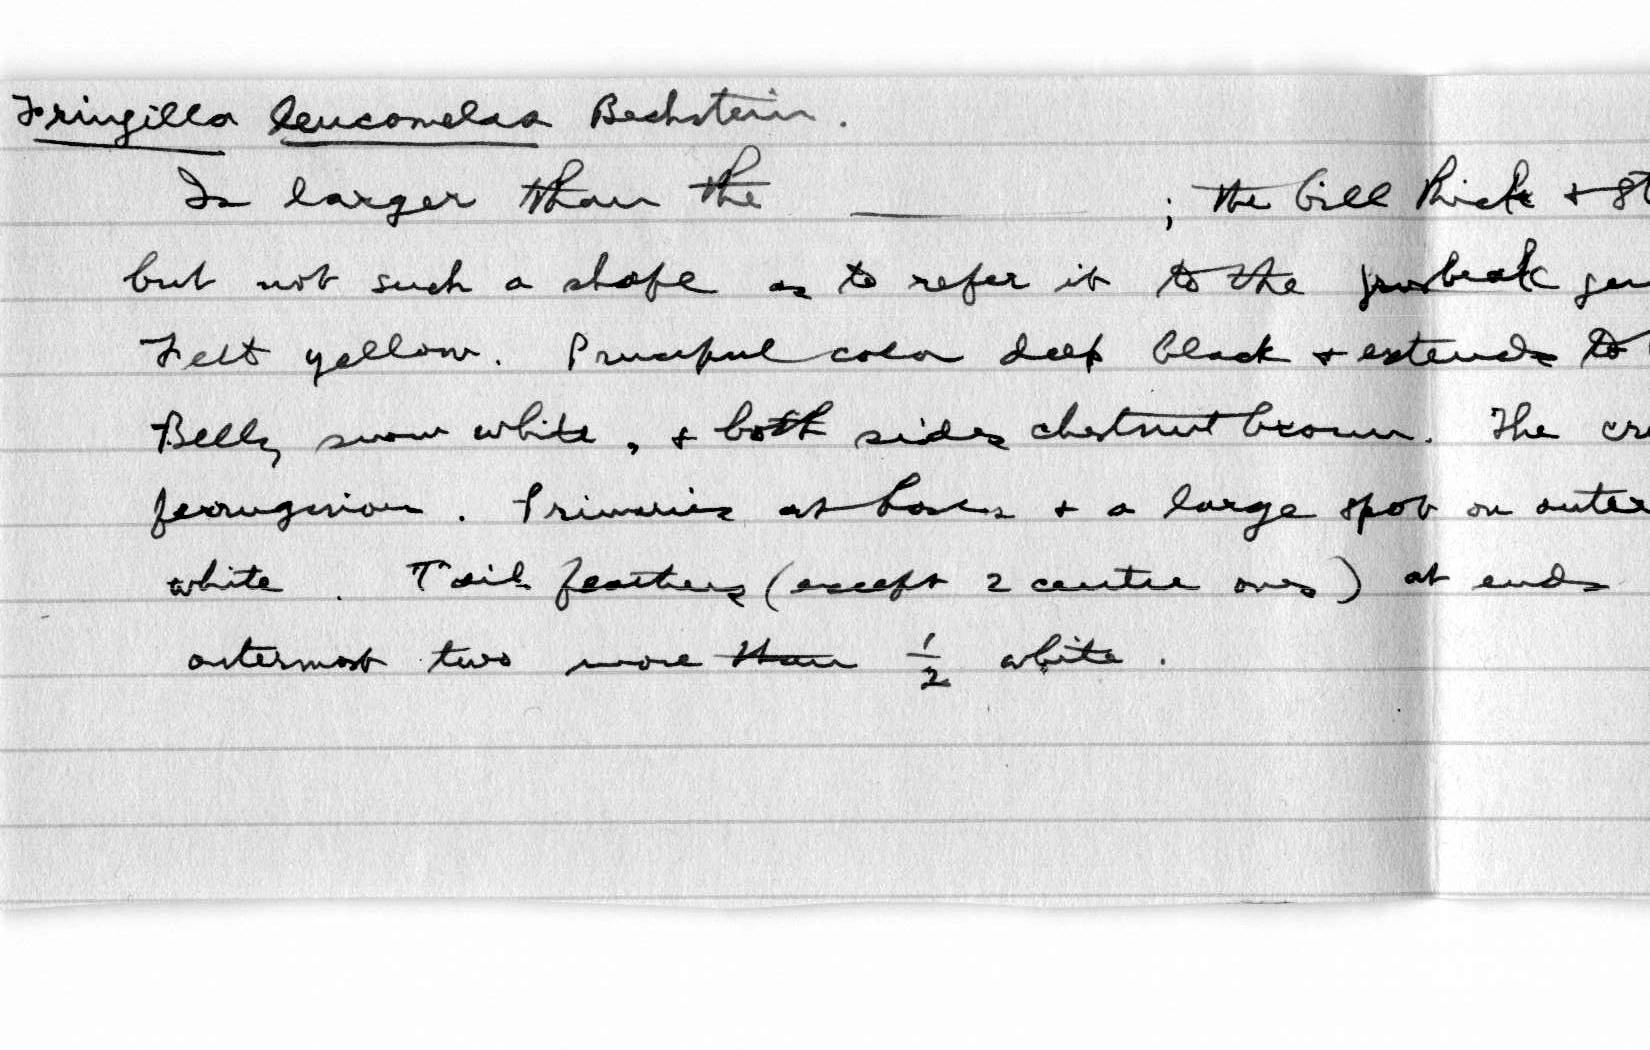 Fringilla leucomelas Bechstein.
Is larger than the ; the bill thick + st
but not such a shape as to refer it to the grosbeak gen
Feet yellow. Principal color deep black + extends to
Belly snow white, + both sides chestnut brown. The cr
ferruginous. Primaries at bases + a large spot on outer
white. Tail feathers (except 2 centre ones) at ends
outermost two more than ½ white.